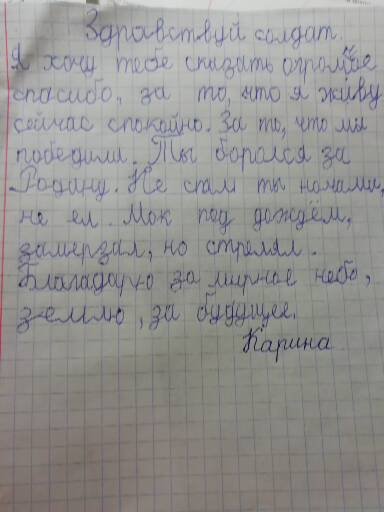 Здравствуй солдат.
Я хочу тебе сказать огромное
спасибо, за то, что я живу
сейчас спокойно. За то, что мы
победили. Ты боролся за
Родину. Не спал ты ночами,
не ел. Мок под дождём,
замерзал, но стрелял.
Благадарю за мирное небо,
землю, за будущее.
Карина